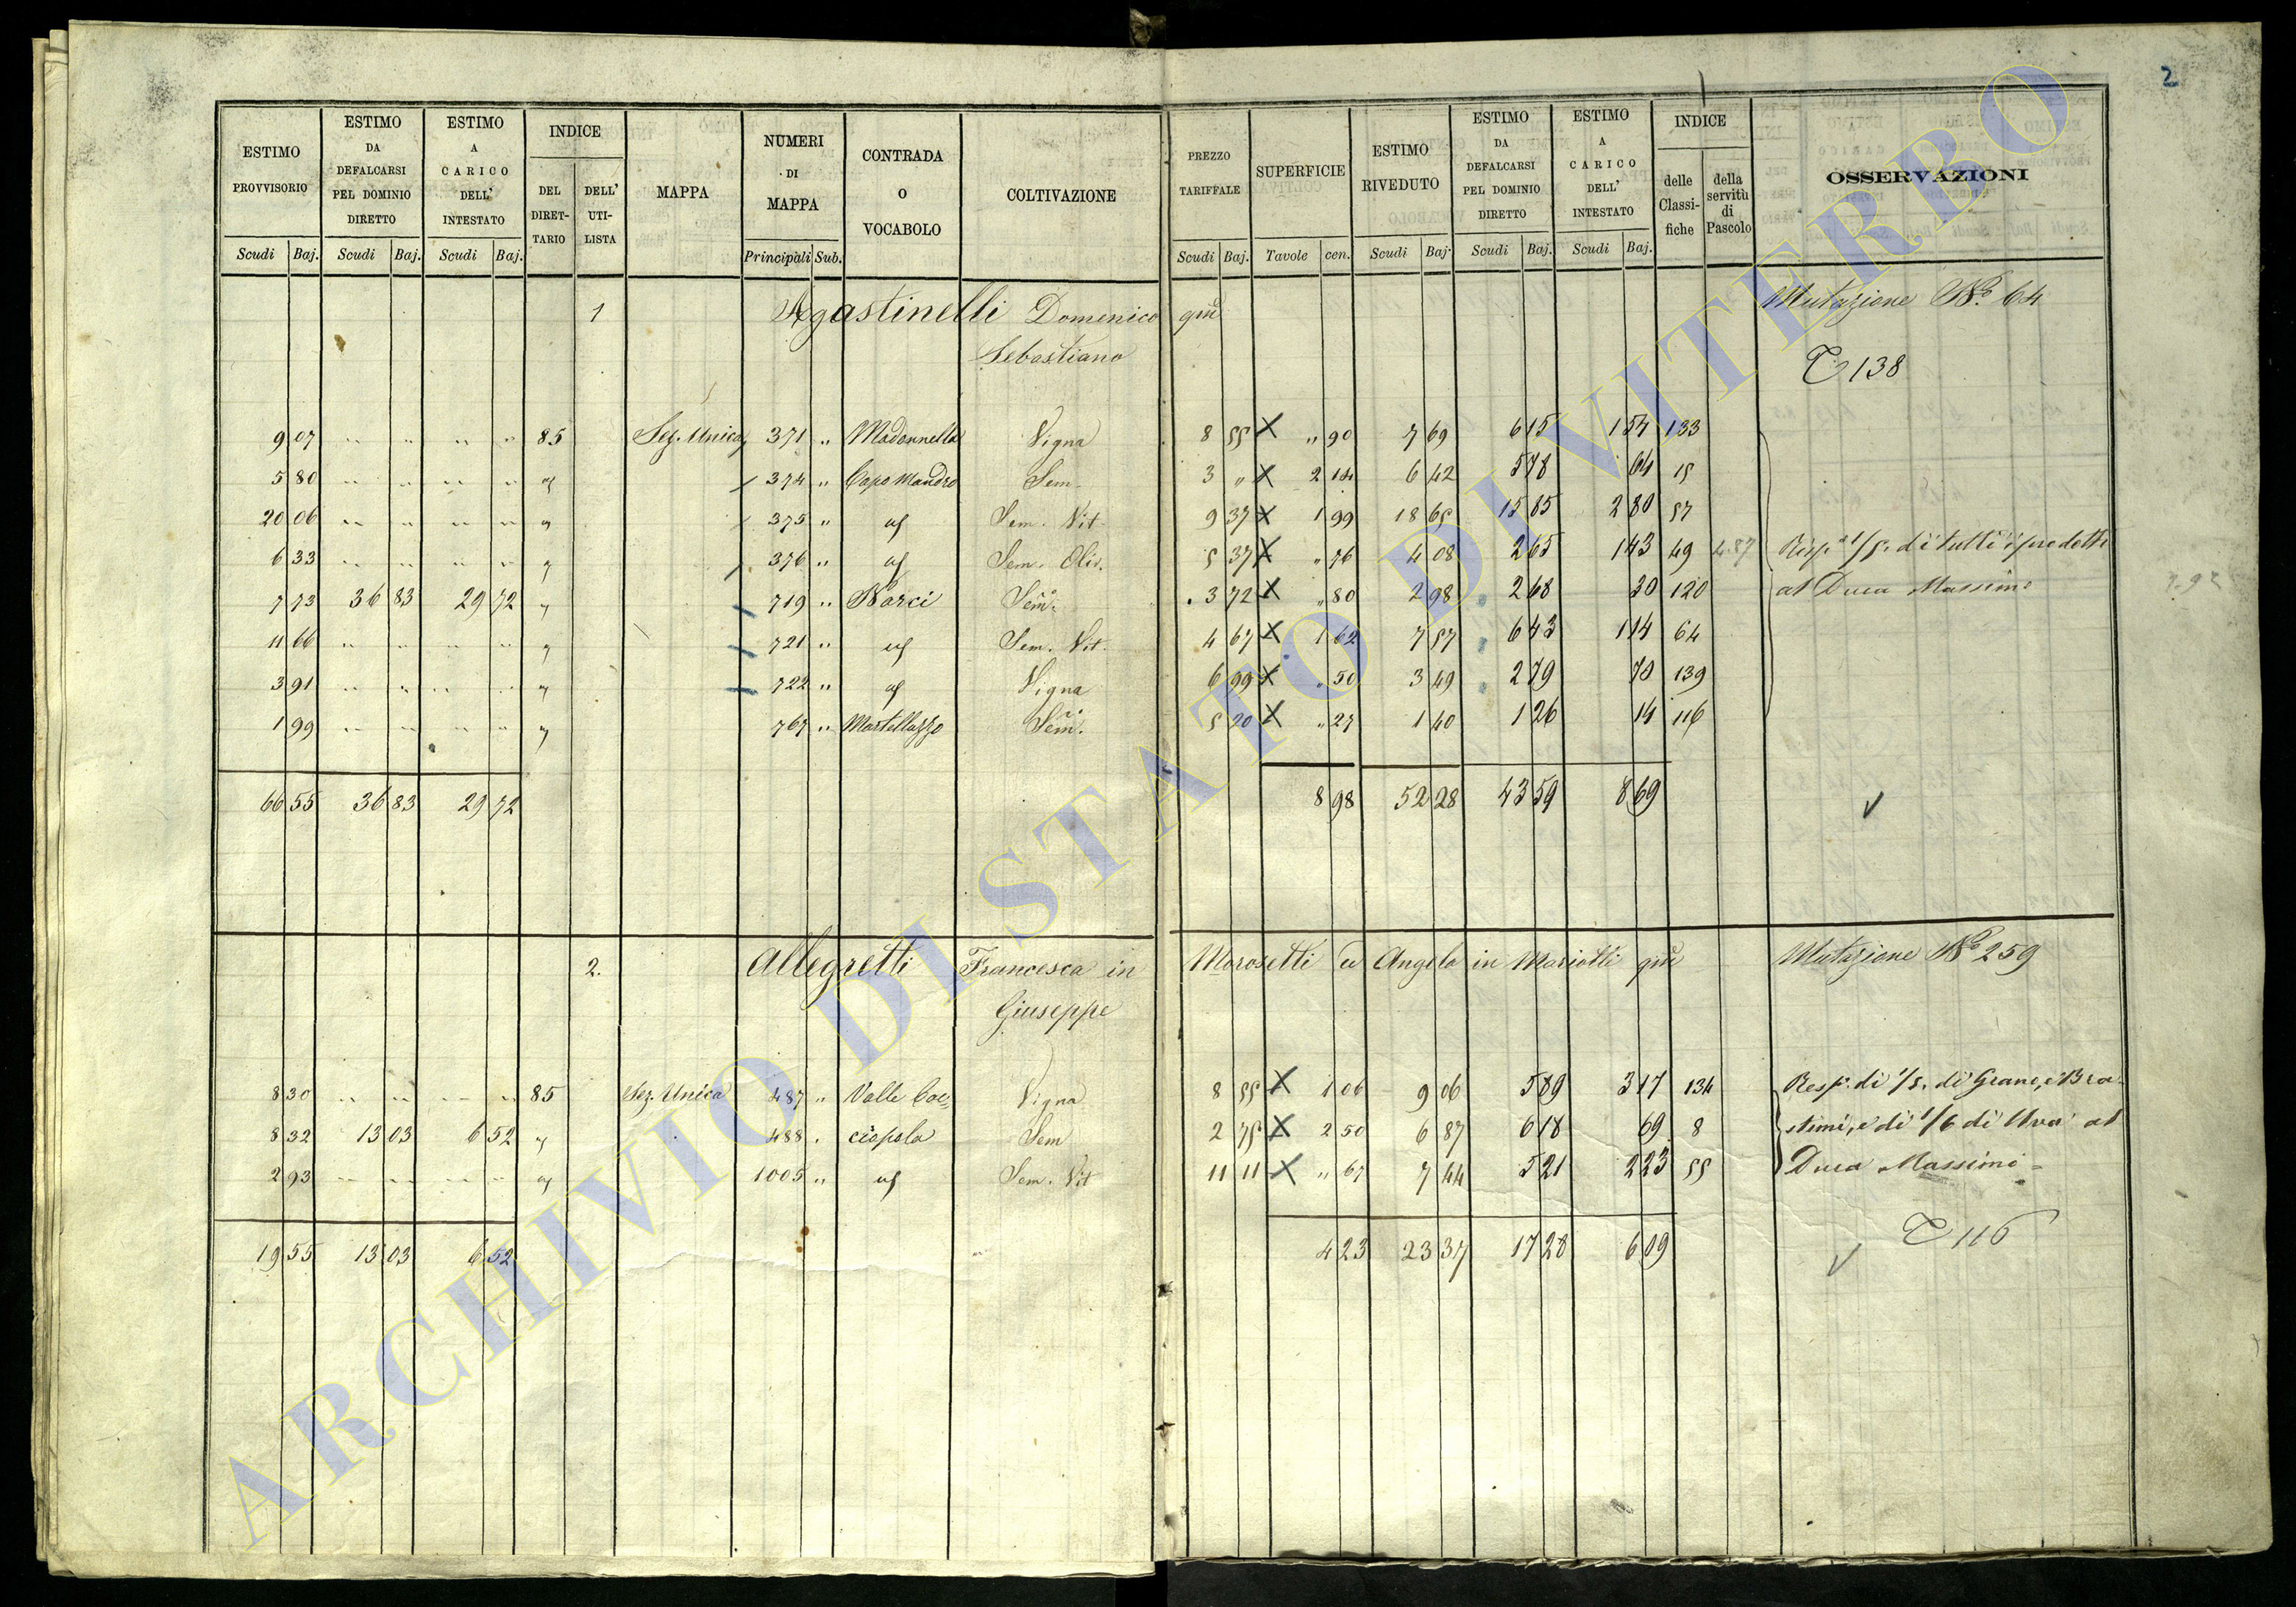 2
ESTIMO PROVVISORIO Scudi Baj. ESTIMO DA DEFALCARSI PEL DOMINIO DIRETTO Scudi Baj. ESTIMO A CARICO DELL' INTESTATO Scudi Baj. INDICE DEL DIRETTARIO DELL' UTILISTA MAPPA NUMERI DI MAPPA Principali Sub. CONTRADA O VOCABOLO COLTIVAZIONE PREZZO TARIFFALE Scudi Baj. SUPERFICIE Tavole cen. ESTIMO RIVEDUTO Scudi Baj. ESTIMO DA DEFALCARSI PEL DOMINIO DIRETTO Scudi Baj. ESTIMO A CARICO DELL' INTESTATO Scudi Baj. INDICE delle Classifiche della servitù di Pascolo OSSERVAZIONI
1 Agastinelli Domenico qm Mutazione No. 64
Sebastiano
138
9 07 " " " " 85 Sez. Unica 371 " Madonnella Vigna 8 55 X " 90 7 69 6 15 1 54 133
5 80 " " " " " 374 " Capo Mandro Sem. 3 " X 2 14 6 42 5 78 64 15
20 06 " " " " " 375 " " Sem. Vit. 9 37 X 1 99 18 65 15 85 2 80 57
6 33 " " " " " 376 " " Sem. Oliv. 5 37 X " 76 4 08 2 65 1 43 49 Risp. 1/5. di tutti i predetti
7 73 36 83 29 72 " 719 " Narci Sem. 3 72 X " 80 2 98 2 68 30 120 al Duca Massimo
11 66 " " " " " 721 " " Sem. Vit. 4 67 X 1 62 7 57 6 43 1 14 64
3 91 " " " " " 722 " " Vigna 6 99 X " 50 3 49 2 79 70 139
1 99 " " " " " 767 " Martellazzo Sem. 5 20 X " 27 1 40 1 26 14 116
66 55 36 83 29 72 8 98 52 28 43 59 8 69
2. Allegretti Francesca in Morosetti ed Angela in Mariotti qm Mutazione No 259
Giuseppe
8 30 " " " " 85 Sez. Unica 487 " Valle Coc= Vigna 8 55 X 1 06 9 06 5 89 3 17 134 Resp. di 1/5. di Grano, e Bra-
8 32 13 03 6 52 " 488 " ciopola Sem 2 75 X 2 50 6 87 6 18 69 8 stimi, e di 1/6 di Uva al
2 93 " " " " " 1005 " " Sem. Vit 11 11 X " 67 7 44 5 21 2 23 55 Duca Massimo =
116
19 55 13 03 6 52 4 23 23 37 17 28 6 09
ARCHIVIO DI STATO DI VITERBO